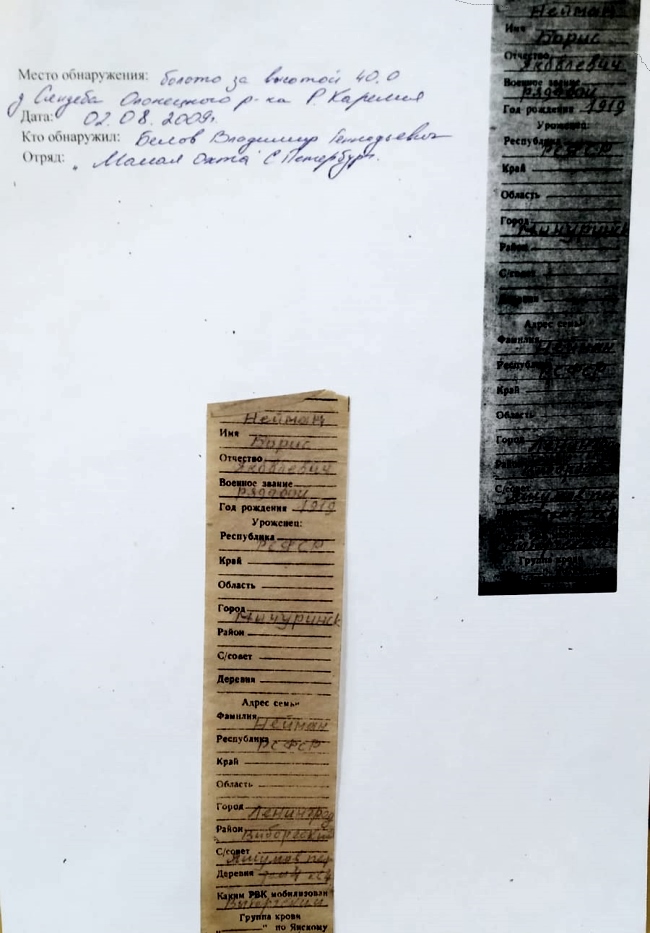 Место обнаружения: болото за высотой 40.0
д Сяндеба Олонецкого р-на Р. Карелия
Дата: 02.08.2009г.
Кто обнаружил: Белов Владимир Геннадьевич
Отряд: "Малая Охта" С Петербург.
Нейман
Имя Борис
Отчество Яковлевич
Военное звание рядовой
Год рождения 1919
Уроженец:
Республика РСФСР
Край
Область
Город Мичуринск
Район
С/совет
Деревня
Адрес семьи
Фамилия Нейман
Республика РСФСР
Край
Область
Город
Район
С/совет
Группа крови
Нейман
Имя Борис
Отчество Яковлевич
Военное звание рядовой
Год рождения 1919
Уроженец:
Республика РСФСР
Край
Область
Город Мичуринск
Район
С/совет
Деревня
Адрес семьи
Фамилия Нейман
Республика РСФСР
Край
Область
Город Ленинград
Район Выборгский
С/совет
Деревня
Каким РВК мобилизован
Выборгский
Группа крови
" по Янскому